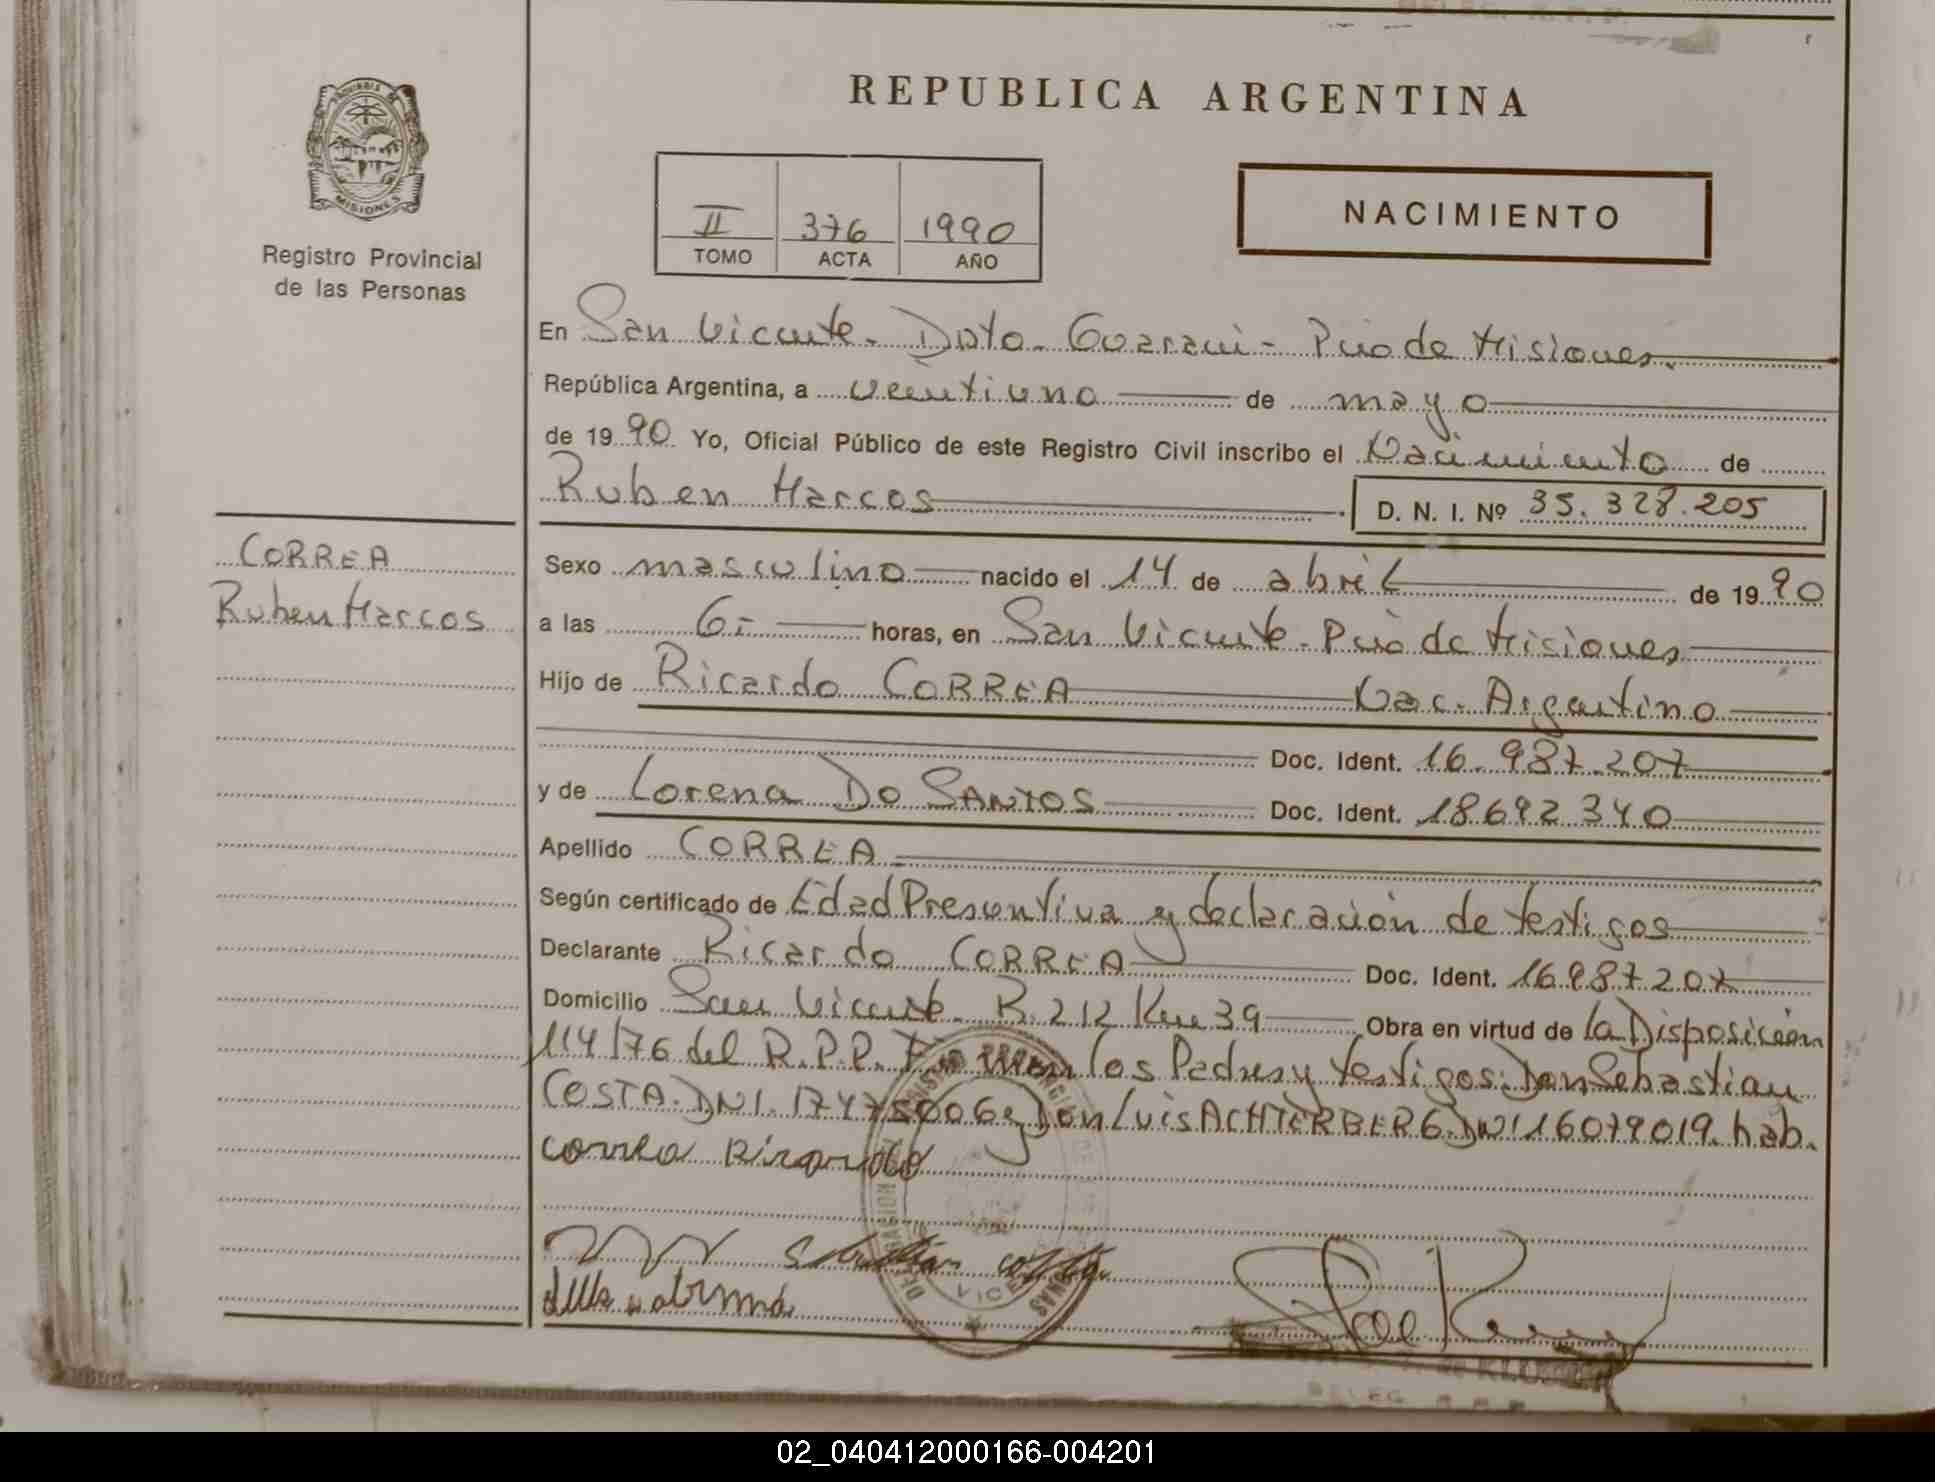 REPUBLICA ARGENTINA
PROVINCIA DE
MISIONES
Registro Provincial
de las Personas
II 376 1990
TOMO ACTA AÑO
NACIMIENTO
En San Vicente. Dpto. Guaraní - Pcia de Misiones.
República Argentina, a veintiuno de mayo
de 1990 Yo, Oficial Público de este Registro Civil inscribo el Nacimiento de
Ruben Marcos
D. N. I. Nº 35.328.205
CORREA
Ruben Marcos
Sexo masculino nacido el 14 de abril de 1990
a las 6.- horas, en San Vicente - Pcia de Misiones
Hijo de Ricardo CORREA Nac. Argentino
Doc. Ident. 16.987.207
y de Lorena Do SANTOS Doc. Ident. 18692340
Apellido CORREA
Según certificado de Edad Presuntiva y declaración de testigos
Declarante Ricardo CORREA Doc. Ident. 16987207
Domicilio San Vicente. R. 212 Km 39 Obra en virtud de la Disposición
114/76 del R.P.P. los Padres y testigos: Don Sebastian
COSTA. DNI. y Don Luis ACHTERBERG. DNI 16079019. hab.
correa Ricardo
VICE
02_040412000166-004201